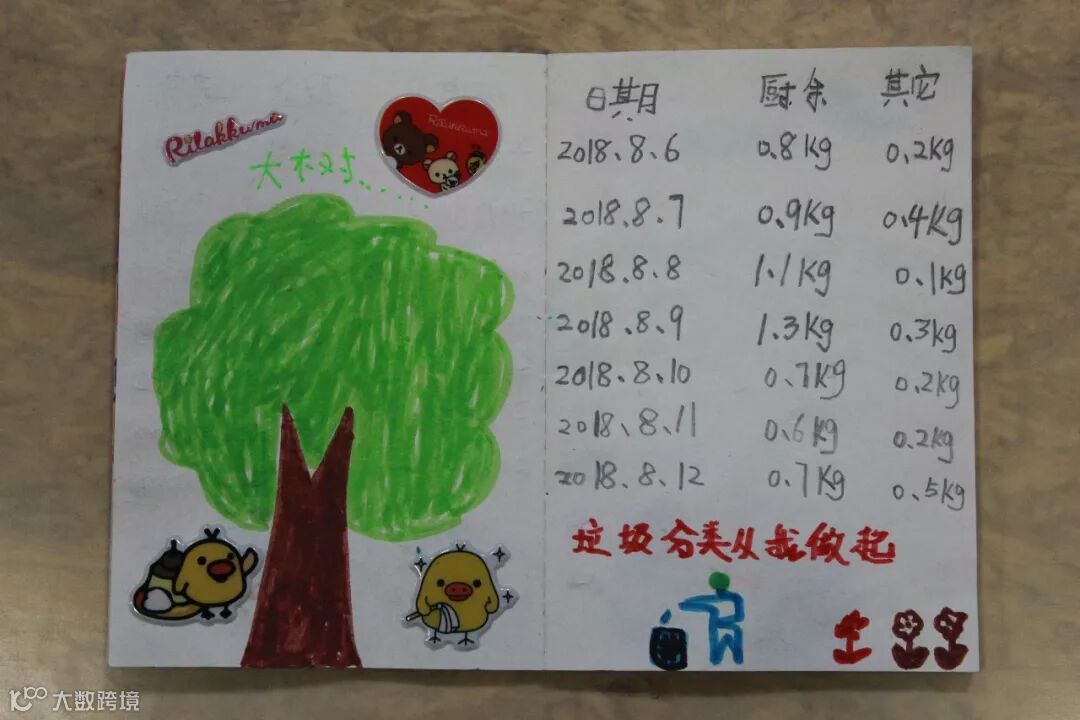 Rilakkuma
Rilakkuma
大树......
日期 厨余 其它
2018.8.6 0.8kg 0.2kg
2018.8.7 0.9kg 0.4kg
2018.8.8 1.1kg 0.1kg
2018.8.9 1.3kg 0.3kg
2018.8.10 0.7kg 0.2kg
2018.8.11 0.6kg 0.2kg
2018.8.12 0.7kg 0.5kg
垃圾分类从我做起
大数跨境